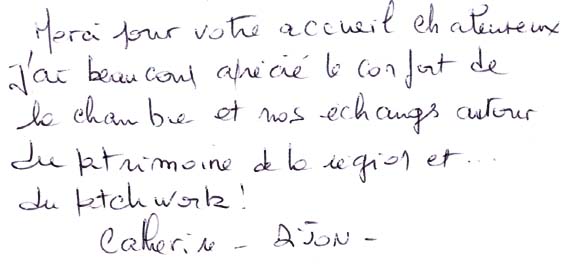 Merci pour votre accueil chaleureux
J'ai beaucoup aprécié le confort de
la chambre et nos échangs autour
du ptrimoine de la région et...
du ptchwork!
Catherine - DIJON -